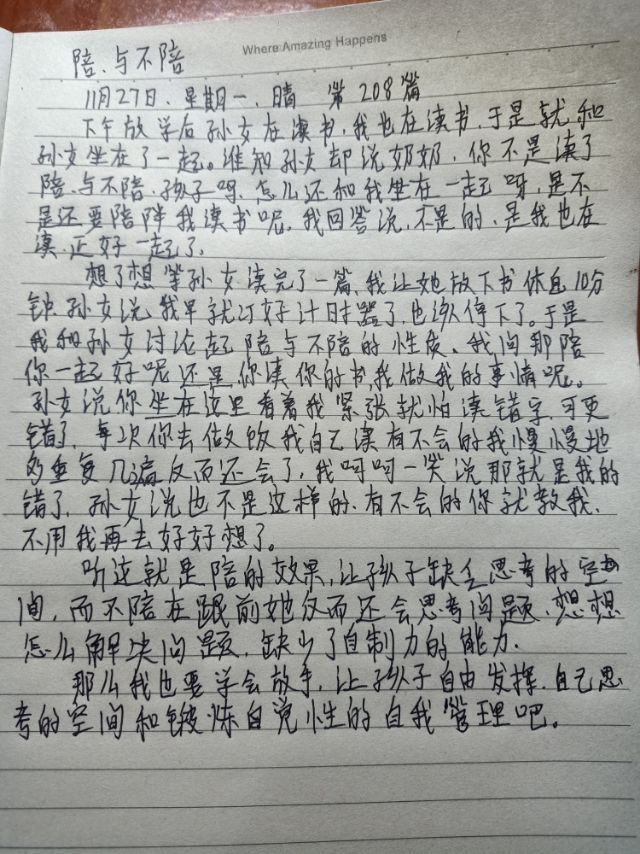 Where Amazing Happens
陪与不陪
11月27日、星期一、晴 第208篇
下午放学后孙女在读书,我也在读书,于是就和
孙女坐在了一起。谁知孙女却说奶奶,你不是读了
陪与不陪、孩子吗,怎么还和我坐在一起呀,是不
是还要陪伴我读书呢,我回答说,不是的,是我也在
读,正好一起了。
想了想等孙女读完了一篇,我让她放下书休息10分
钟,孙女说我早就订好计时器了,也该停下了。于是
我和孙女讨论起陪与不陪的性质、我问那陪
你一起好呢还是你读你的书,我做我的事情呢。
孙女说你坐在这里看着我紧张就怕读错字,可更
错了,每次你去做饭我自己读有不会的我慢慢地
多重复几遍反而还会了,我呵呵一笑说那就是我的
错了,孙女说也不是这样的,有不会的你就教我,
不用我再去好好想了。
听这就是陪的效果,让孩子缺乏思考的空
间,而不陪在跟前她反而还会思考问题,想想
怎么解决问题,缺少了自制力的能力.
那么我也要学会放手,让孩子自由发挥、自己思
考的空间和锻炼自觉性的自我管理吧。